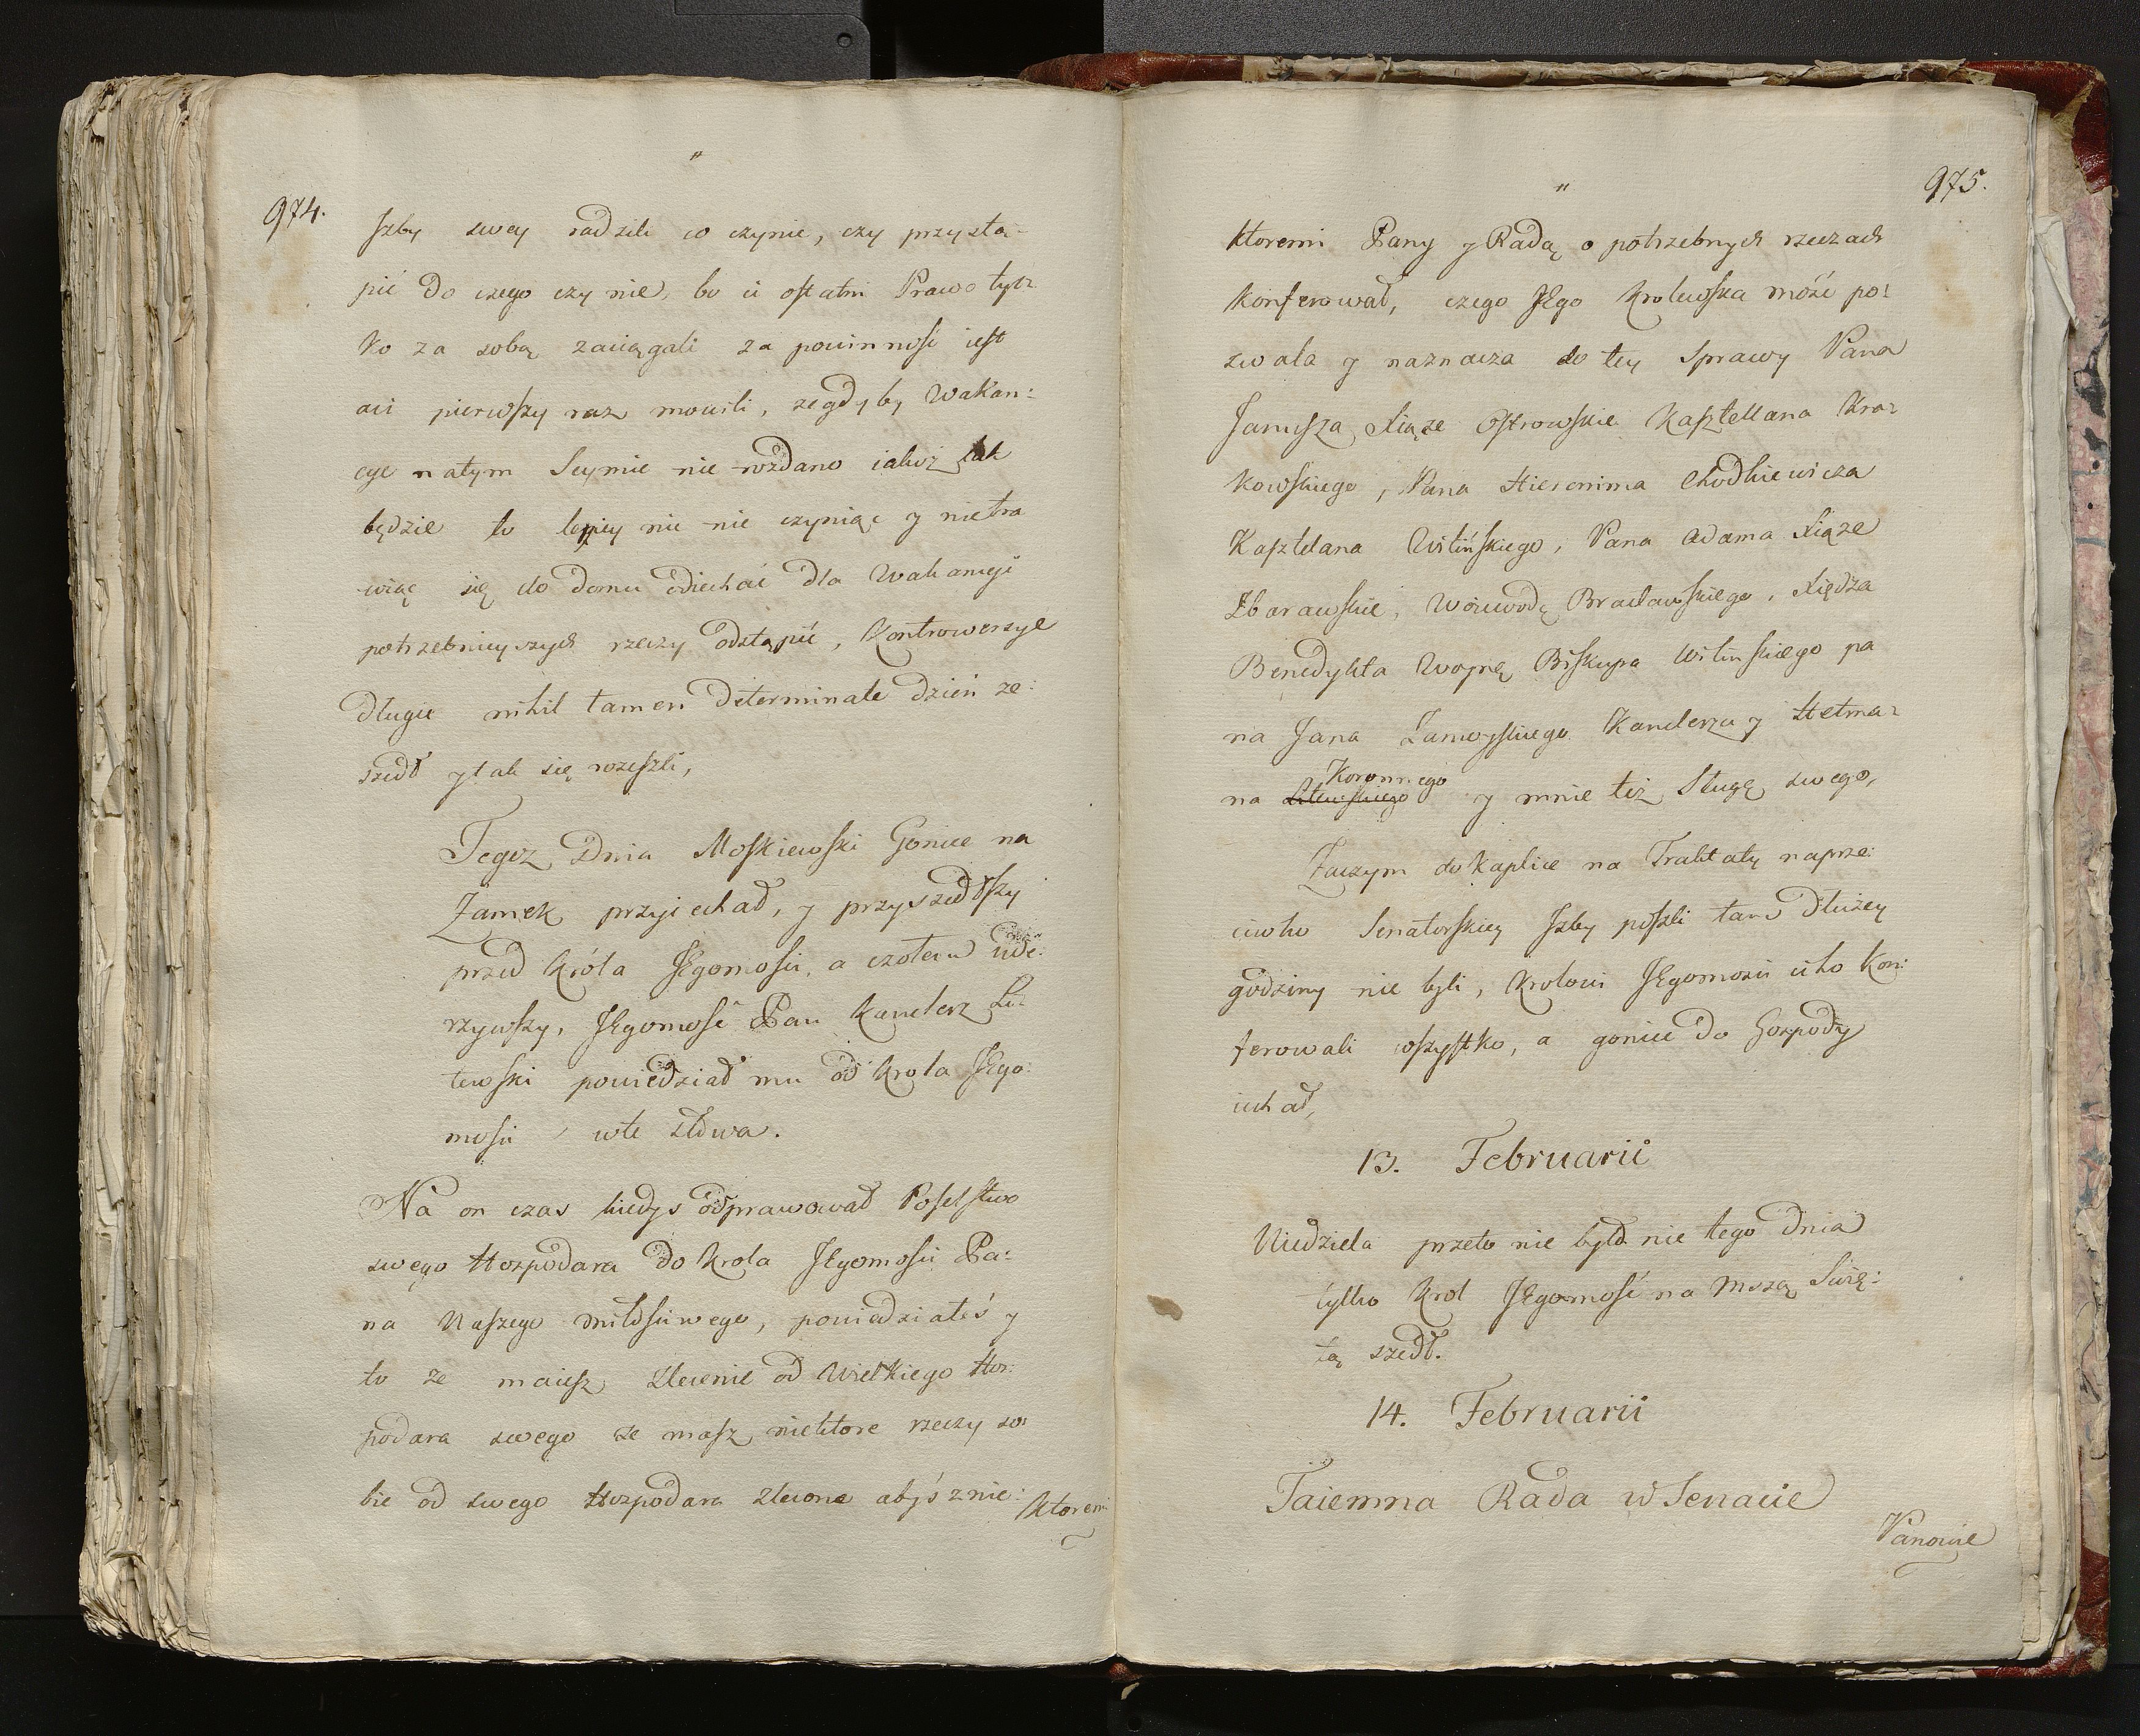 974.
Jzby swey radzili co czynić, czy przysta-
pić do czego czy nie, bo ci ostatni Prawo tyl=
ko za sobą zaciągali za powinność iest
aci pierwszy raz mowili, zegdyby Wakan:
cye natym Seymie nie rozdano iakoż tak
będzie to lepiey nic nie czyniąc y nietra
wiąc się do domu odiechać dla Wakancyi
potrzebnieyszych rzeczy odstąpić, Kontrowersye
długie nihil tamen determinate dzień ze:
szedł ytak się rozeszli,
Tegoz Dnia Moskiewski Goniec na
Zamek przyiechał, y przyszedłszy
przed króla JEgomości, a czołem ude:
rzywszy, JEgomość Pan Kanclerz Li=
tewski powiedział mu od krola JEgo:
mości wte słowa.
Na on czas kiedys odprawował Poselstwo
swego Hospodara do krola JEgomości Pa:
na Naszego miłościwego, powiedziałeś y
to ze maiesz zlecenie od Wielkiego Hos:
podara swego ze masz niektore rzeczy so:
bie od swego Hospodara zlecone abyś znie:
ktoremi
975.
ktoremi Pany y Radą o potrzebnych rzeczach
konferował, czego JEgo krolewska mość po:
zwala y naznacza do tey sprawy Pana
Janusza Xiąże Ostrowskie Kasztellana Kra=
kowskiego, Pana Hieronima Chodkiewicza
Kasztelana Wilińskiego, Pana Adama Xiąze
Zbarawskie, Woiewodę Bracławskiego, Xiędza
Benedykta Woynę Biskupa Wilinskiego pa
na Jana Zamoyskiego Kanclerza y Hetma=
Koronnego
na Litewskiego y mnie też Sługę swego,
Zaczym do Kaplice na Traktaty naprze:
ciwko Senatorskiey Jzby poszli tam dłużey
godziny nie byli, krolowi JEgomości cito kon:
ferowali wszystko, a goniec do Gospody
iechał,
13. Februarii
Niedziela przeto nie było nic tego dnia
tylko krol JEgomość na mszą Swię:
tą szedł.
14. Februarii
Taiemna Rada w Senacie
Panowie